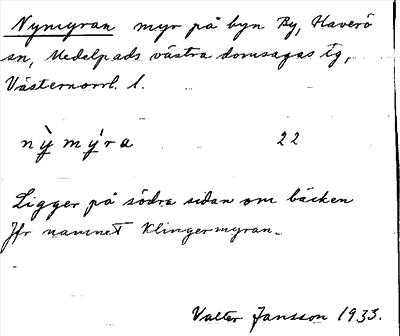 Nymyran myr på byn By, Haverö
sn, Medelpads västra domsagas tg,
Västernorrl. l.
nỳ mỵ́ra 22
Ligger på södra sidan om bäcken
Jfr namnet Klingermyran.
Valter Jansson 1933.